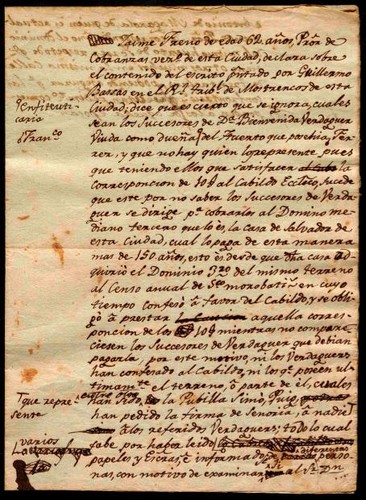 Jaime Freno de edad 62 años, Pror. de
Cobranzas verno. de esta Ciudad, declara sobre
el contenido del escrito pntado. por Guillermo
Bassas en el Rl. Trabl. de Mostrencos de esta
Ciudad; dice que es cierto que se ignora, cuales
sean los Successores de Da. Bienvenida Verdaguer
Viuda como dueña del Huerto que poehia Fer-
rer, y que no hay quien lo represente, pues
que teniendo ellos que satisfacer la
corresponcion de 10 al Cabildo Eccleco., sucede
que este por no saber los Successores de Verda-
guer se dirige pa. cobrarlos al Dominio me-
diano tercero que lo es, la casa de Salvador de
esta Ciudad, cual lo paga de esta manera
mas de 150 años, esto es desde que dha casa ad-
quirió el Dominio 3ro. del mismo terreno
al Censo anual de morobatis. en cuyo
tiempo confesó a favor del Cabildo, y se obli-
gó a prestar aquella corres-
poncion de los 10 mientras no compare-
ciesen los Successores de Verdaguer que debian
pagarla, por este motivo, ni los Verdaguers
han confesado al Cabildo, ni los qe. poseen ul-
timamte. el terreno, ó parte de él, cuales
han sido, la Pubilla Simó, Puig
han pedido la firma de Señoria, á nadie
á los referidos Verdaguers; todo lo cual
sabe por haber leido diferentes
papeles y Escras., é informado perso-
nas, con motivo de examinar al Sr. Dn
Enfiteuti-
caria
Franco
que repre-
sente
varios